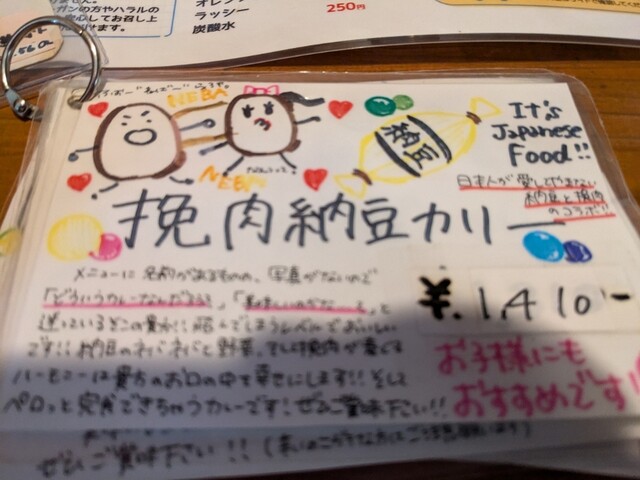 ガンの方やハラルの
安心してお召し上
オレンジ
ラッシー
250円
炭酸水
NEBA
NEBA
納豆
It's
Japanese
Food!!
日本人が愛してやまない
納豆と挽肉
のコラボ!!
挽肉納豆カリー
¥.1,410-
メニューに名前があるものの、写真がないので
「どういうカレーなんだろう」、「美味しいのかな…」と
迷っているそこの貴方!
です!!納豆のネバネバと野菜、そして挽肉が奏でる
ハーモニーは貴方のお口の中で幸せにします!!そして
ペロッと完食できちゃうカレーです!ぜひご賞味下さい!!
お子様にも
おすすめです!
ぜひご賞味下さい!!